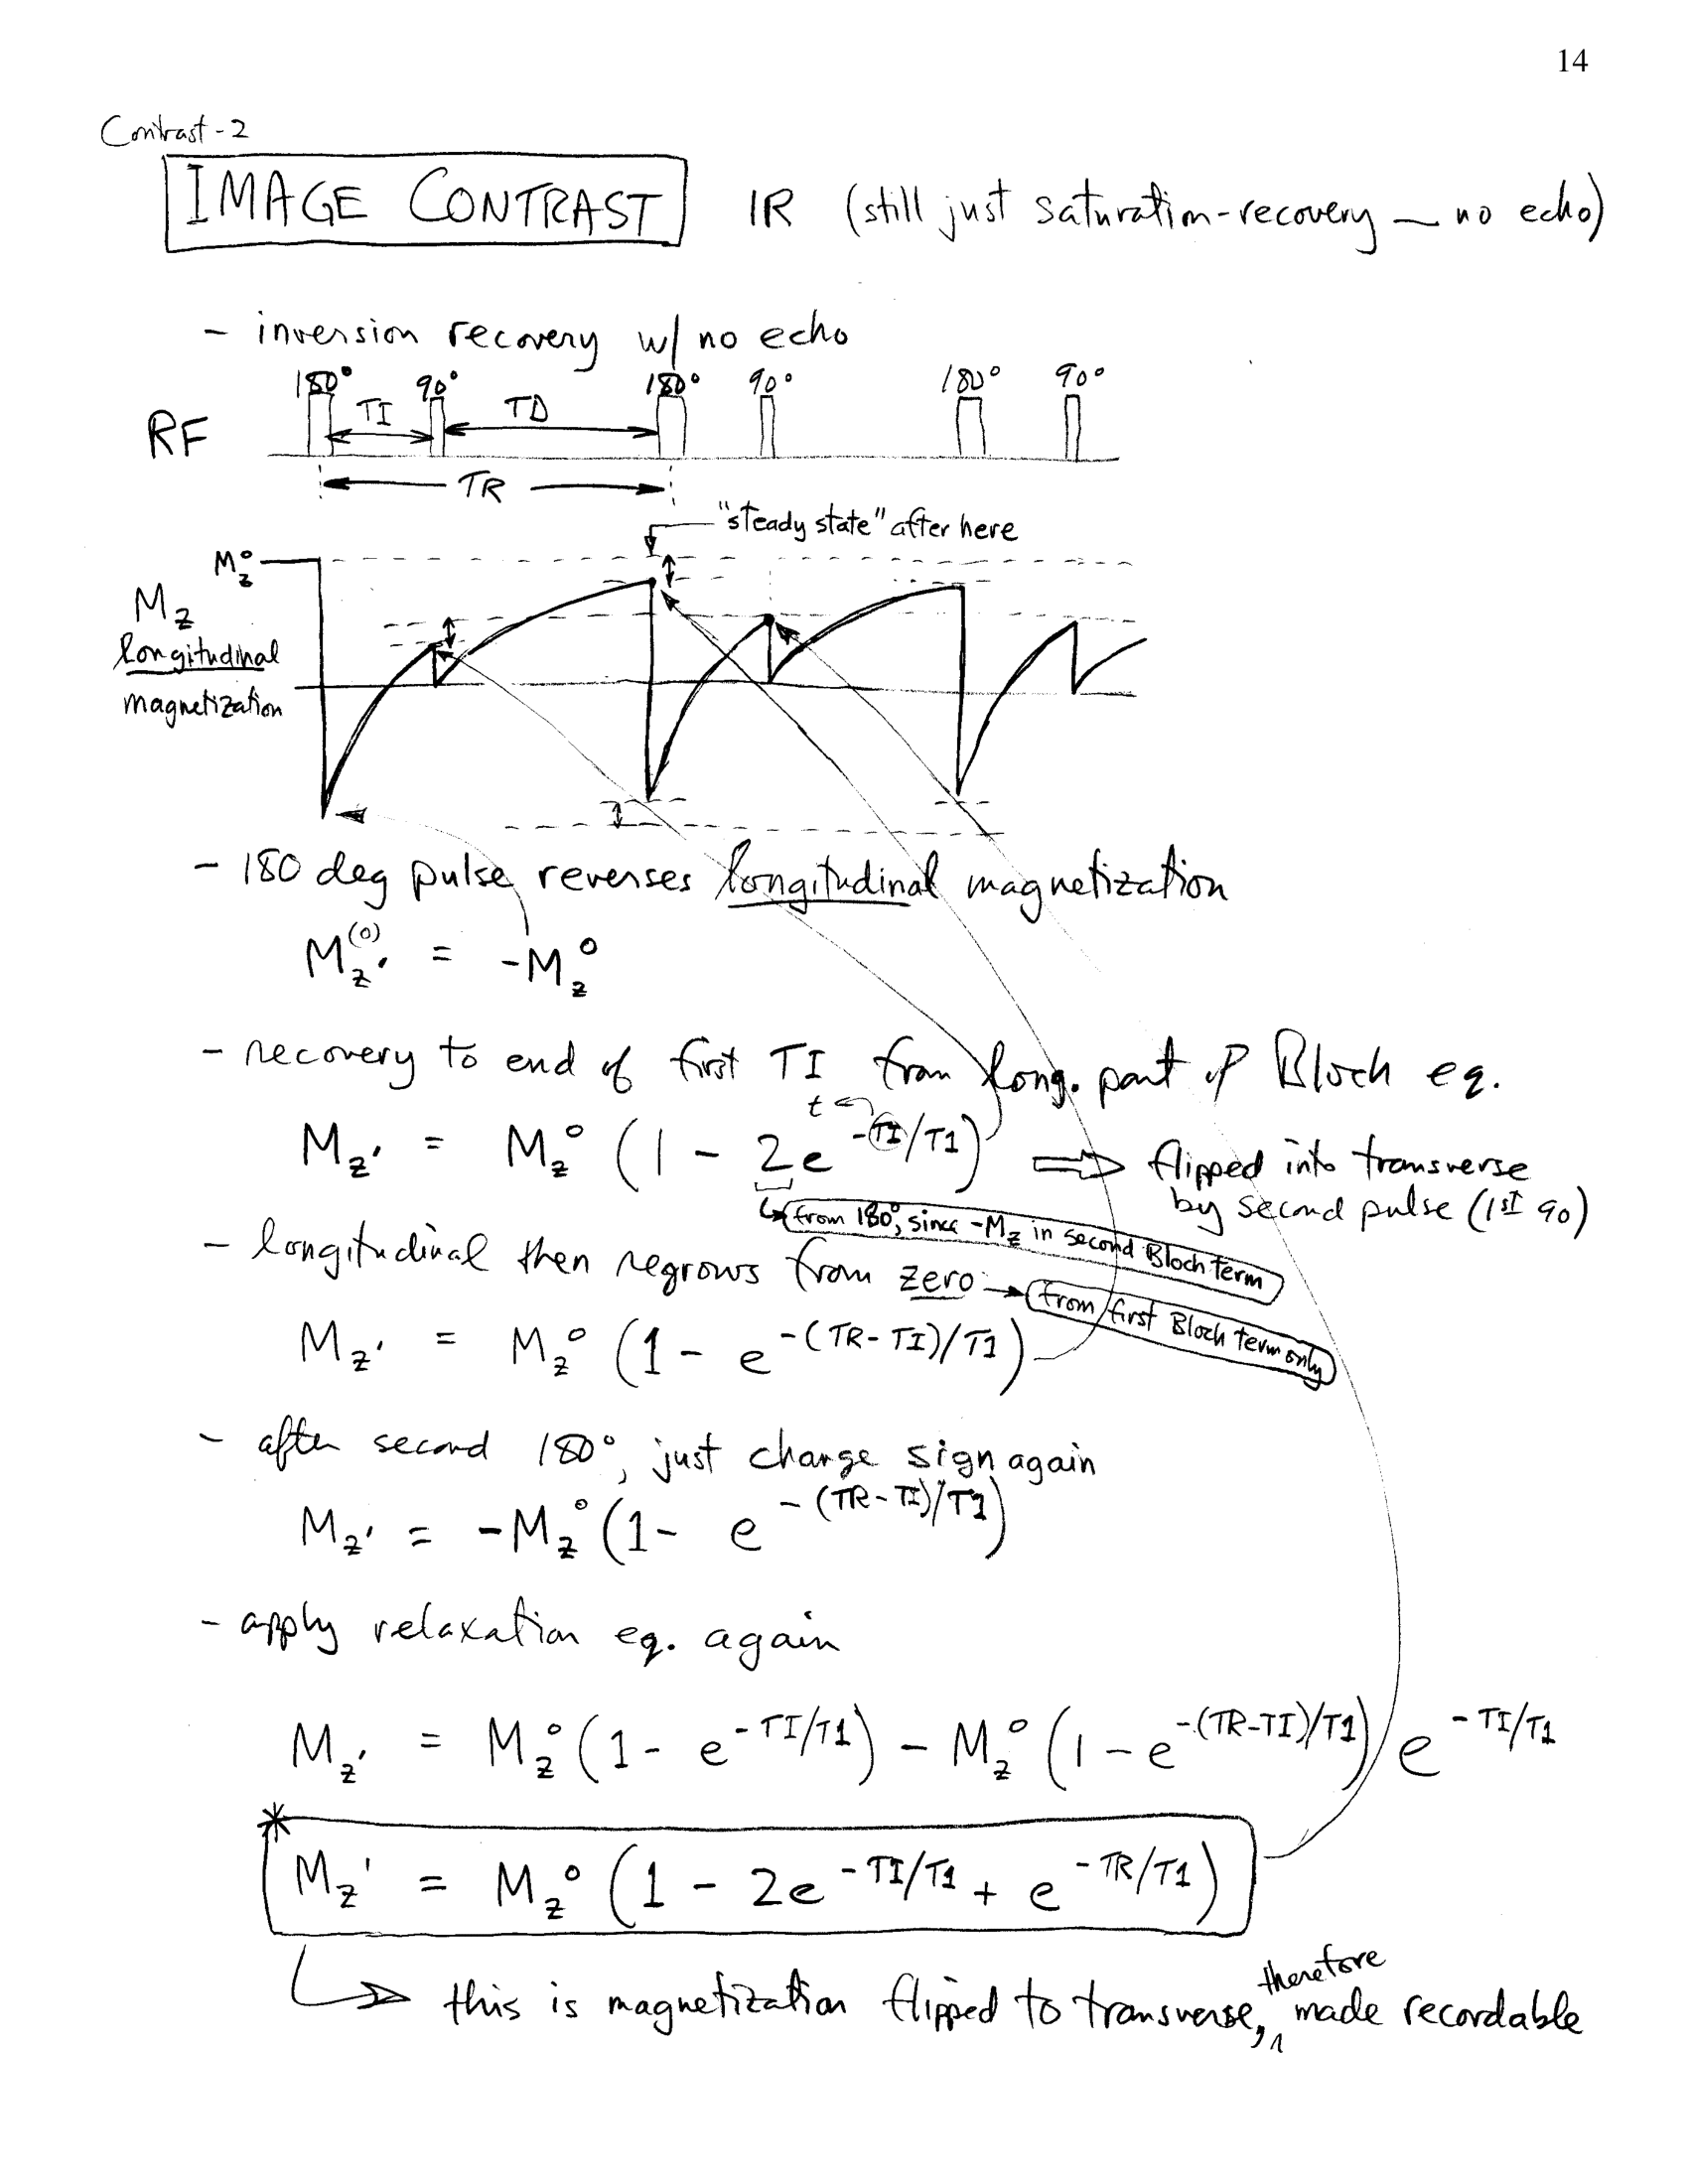 14
Contrast-2
IMAGE CONTRAST IR (still just saturation-recovery — no echo)
- inversion recovery w/ no echo
180° 90° 180° 90° 180° 90°
TI TD
RF
TR
"steady state" after here
M_z°
M_z
longitudinal
magnetization
- 180 deg pulse reverses longitudinal magnetization
M_z'^(0) = -M_z°
- recovery to end of first TI from long. part of Bloch eq.
t
M_z' = M_z° (1 - 2e^(-TI/T1)) ⇒ flipped into transverse
by second pulse (1st 90)
from 180°, since -M_z in second Bloch term
- longitudinal then regrows from zero → from first Bloch term only
M_z' = M_z° (1 - e^(-(TR-TI)/T1))
- after second 180°, just change sign again
M_z' = -M_z° (1 - e^(-(TR-TI)/T1))
- apply relaxation eq. again
M_z' = M_z° (1 - e^(-TI/T1)) - M_z° (1 - e^(-(TR-TI)/T1)) e^(-TI/T1)
* M_z' = M_z° (1 - 2e^(-TI/T1) + e^(-TR/T1))
therefore
this is magnetization flipped to transverse, made recordable